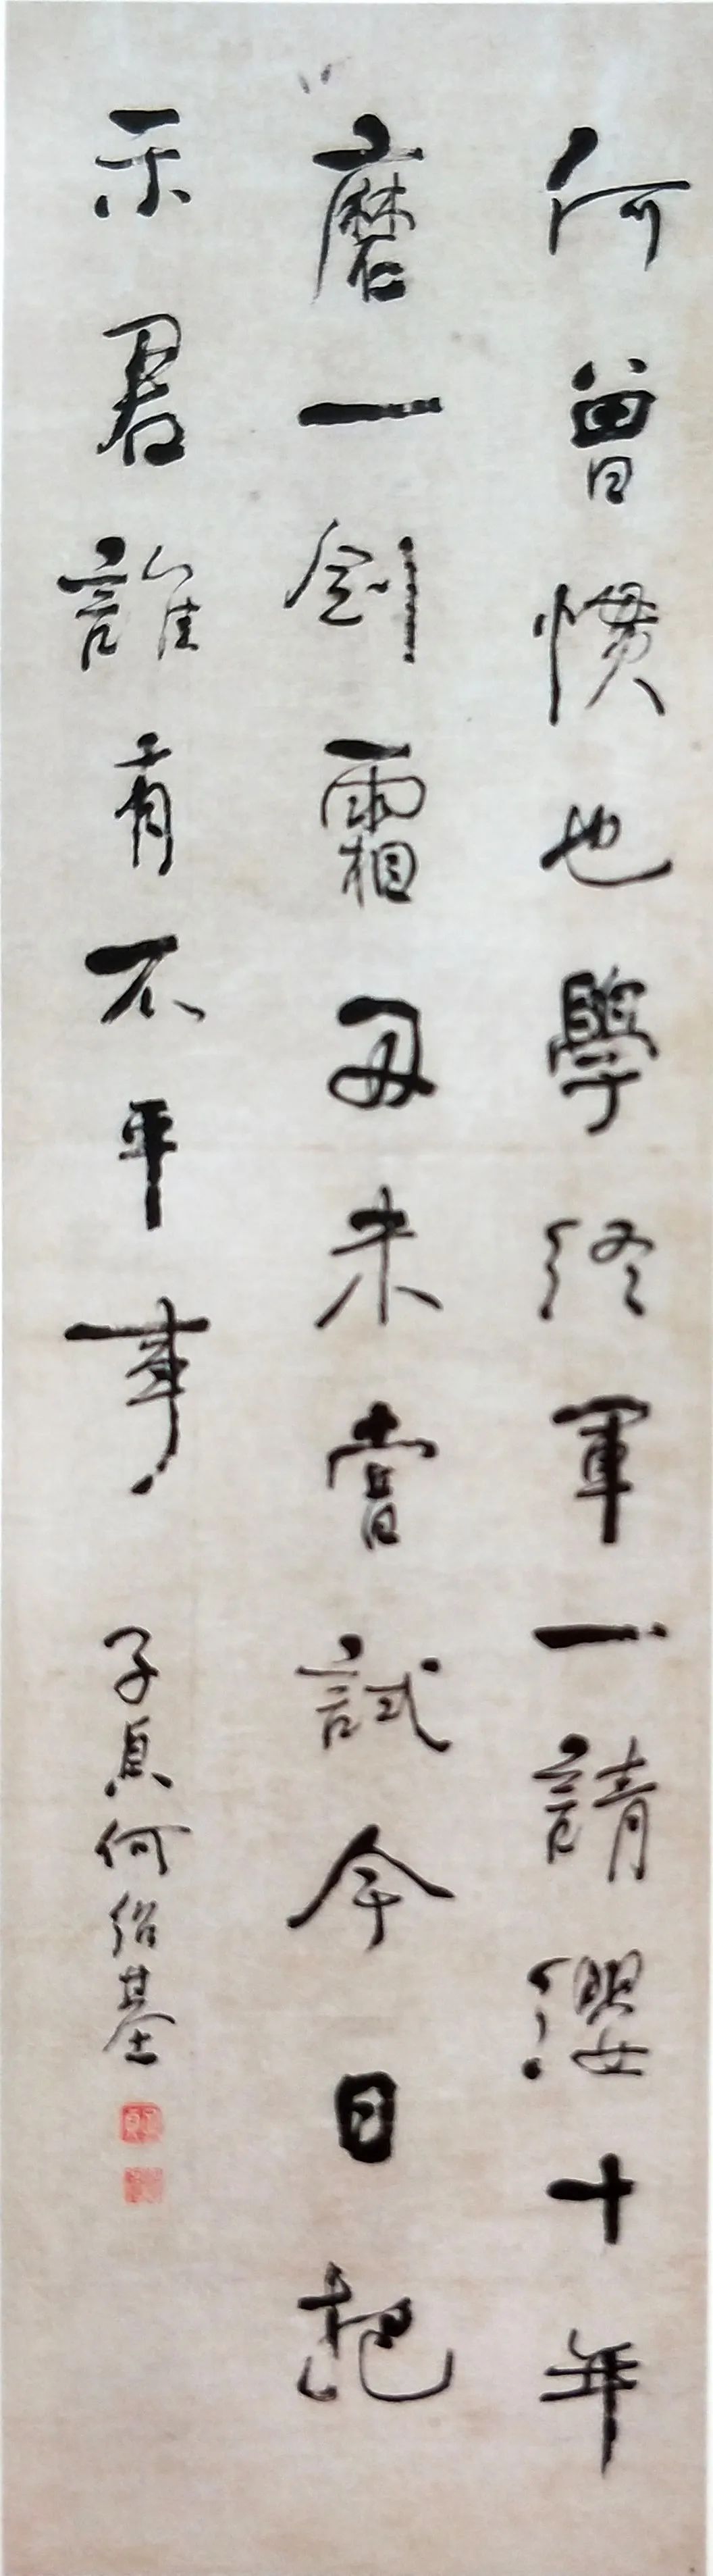 何曾慣也學終軍一請纓十年
磨一劍霜刃未嘗試今日把
示君誰有不平事
子貞何紹基